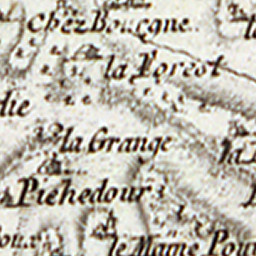 Chez Bourgne
la Forest
die
la Grange
Pichedour
le Maine Pou